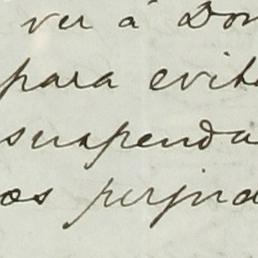 ver á Don
para evita
suspenda
os perjud